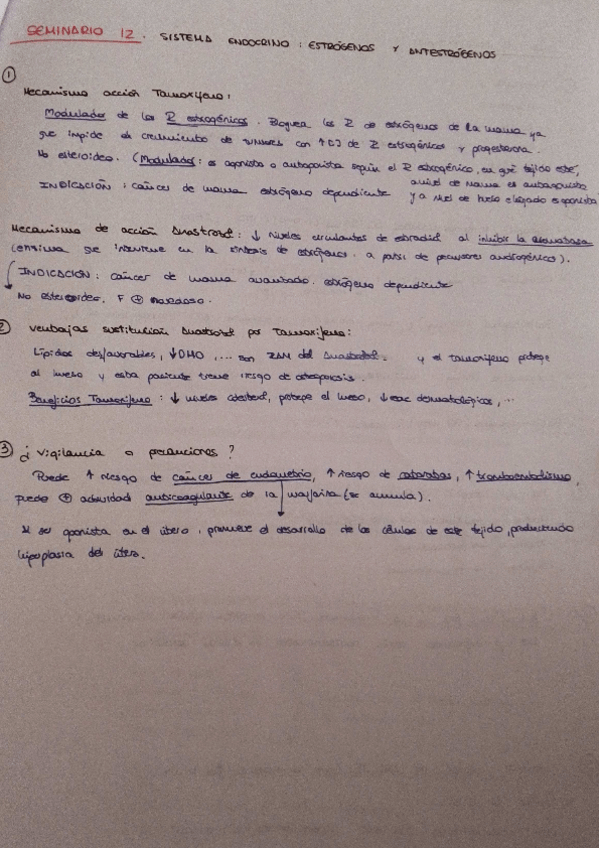 SEMINARIO 12. SISTEMA ENDOCRINO: ESTRÓGENOS Y ANTESTRÓGENOS
① Mecanismo acción Tamoxifeno:
Modulador de los R estrogénicos. Bloquea los R de estrógenos de la mama ya
que impide el crecimiento de tumores con ↑[] de R estrogénicos y progesterona.
No esteroideo. (Modulador: es agonista o antagonista según el R estrogénico, en qué tejido esté,
a nivel de mama es antagonista
INDICACIÓN: cáncer de mama estrógeno dependiente y a nivel de hueso es agonista
Mecanismo de acción Anastrozol: ↓ niveles circulantes de estradiol al inhibir la aromatasa
(enzima que interviene en la síntesis de estrógenos a partir de precursores androgénicos).
INDICACIÓN: cáncer de mama avanzado estrógeno dependiente
No esteroideo. F ⊕
② Ventajas sustitución Anastrozol por Tamoxifeno:
Lípidos desfavorables, ↓DMO, ... son RAM del Anastrozol. y el tamoxifeno protege
al hueso y esta paciente tiene riesgo de osteoporosis.
Beneficios Tamoxifeno: ↓ niveles colesterol, protege el hueso, ↓ dermatológicos, ...
③ ¿Vigilancia o precauciones?
Puede ↑ riesgo de cáncer de endometrio, ↑ riesgo de cataratas, ↑ tromboembolismo,
puede ⊕ actividad anticoagulante de la warfarina (se acumula).
Al ser agonista en el útero, promueve el desarrollo de las células de este tejido, produciendo
hiperplasia del útero.